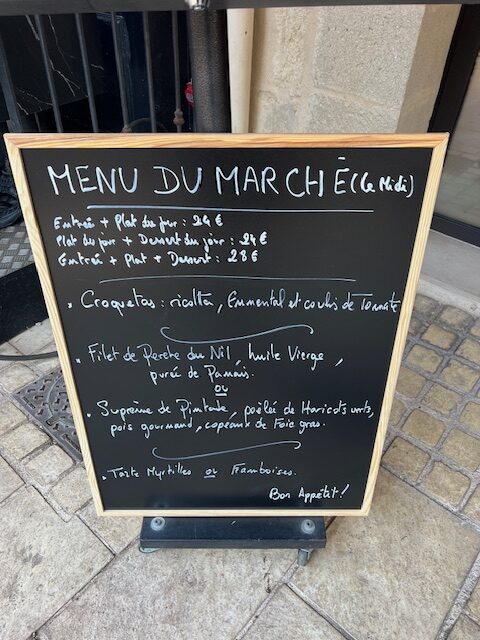 MENU DU MARCHÉ (Le Midi)
Entrée + Plat du jour : 24 €
Plat du jour + Dessert du jour : 24 €
Entrée + Plat + Dessert : 28 €
• Croquetas : ricotta, Emmental et coulis de Tomate
• Filet de Perche du Nil, huile Vierge,
purée de Panais.
ou
• Suprême de Pintade, poêlée de Haricots verts,
pois gourmand, copeaux de Foie gras.
• Tarte Myrtilles ou Framboises.
Bon Appétit !